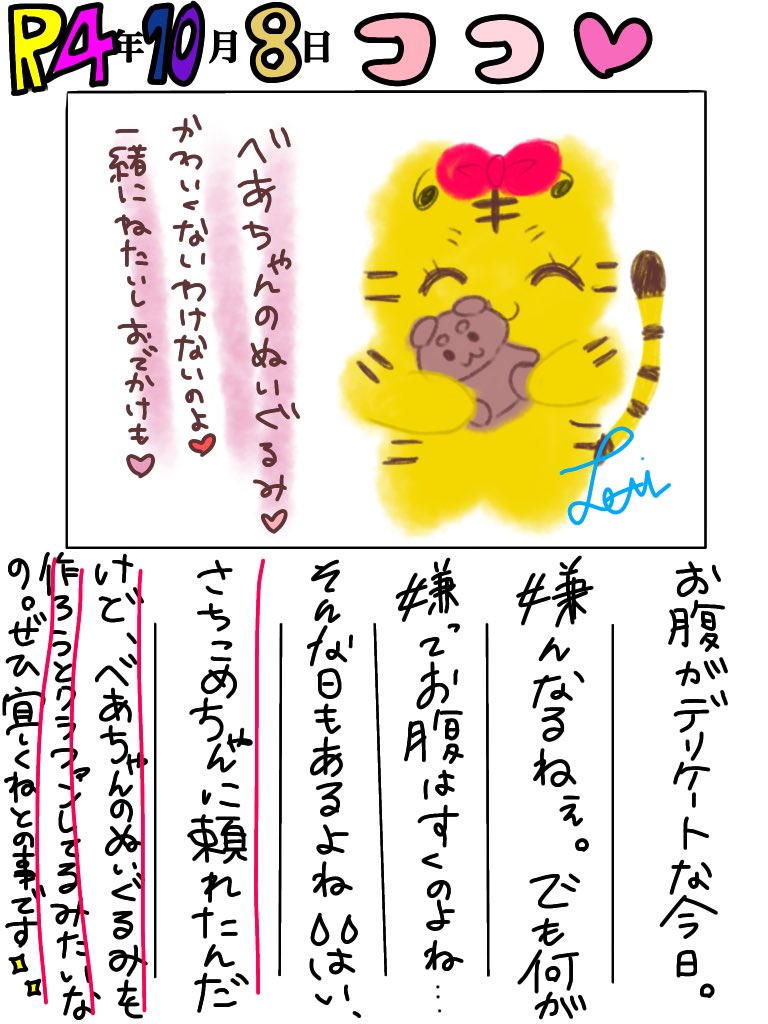 R4年10月8日 ココ♥
べあちゃんのぬいぐるみ♥
かわいくないわけないのよ♥
一緒にねたいしおでかけも♥
Lori
お腹がデリケートな今日。
#嫌んなるねぇ。でも何が
#嫌ってお腹はすくのよね…
そんな日もあるよね💧💧はい、
さちこめちゃんに頼れたんだ
けど、べあちゃんのぬいぐるみを
作ろうとクラファンしてるみたいな
の。ぜひ宜しくねとの事です✨